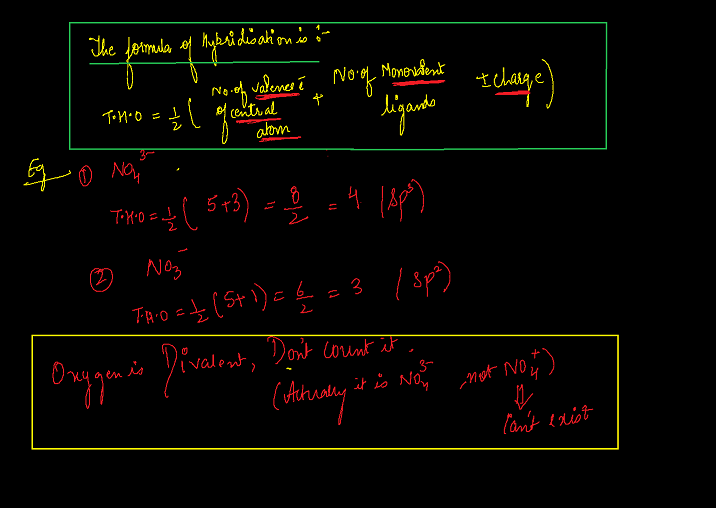 The formula of Hybridisation is :-
T.H.O = 1/2 ( No. of valence e⁻ of central atom + No. of Monovalent ligands ± charge )
Eg
① NO₄³⁻
T.H.O = 1/2 ( 5+3 ) = 8/2 = 4 (sp³)
② NO₃⁻
T.H.O = 1/2 (5+1) = 6/2 = 3 (sp²)
Oxygen is Divalent, Don't count it.
(Actually it is NO₄³⁻, not NO₄⁺)
⇓
Can't exist